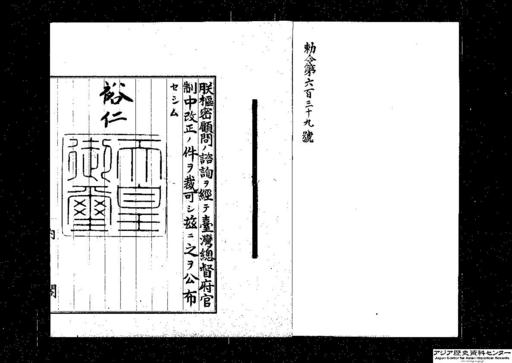 勅令第六百三十九號
朕樞密顧問ノ諮詢ヲ經テ臺灣總督府官
制中改正ノ件ヲ裁可シ茲ニ之ヲ公布
セシム
裕仁
天皇
御璽
内閣
アジア歴史資料センター
Japan Center for Asian Historical Records